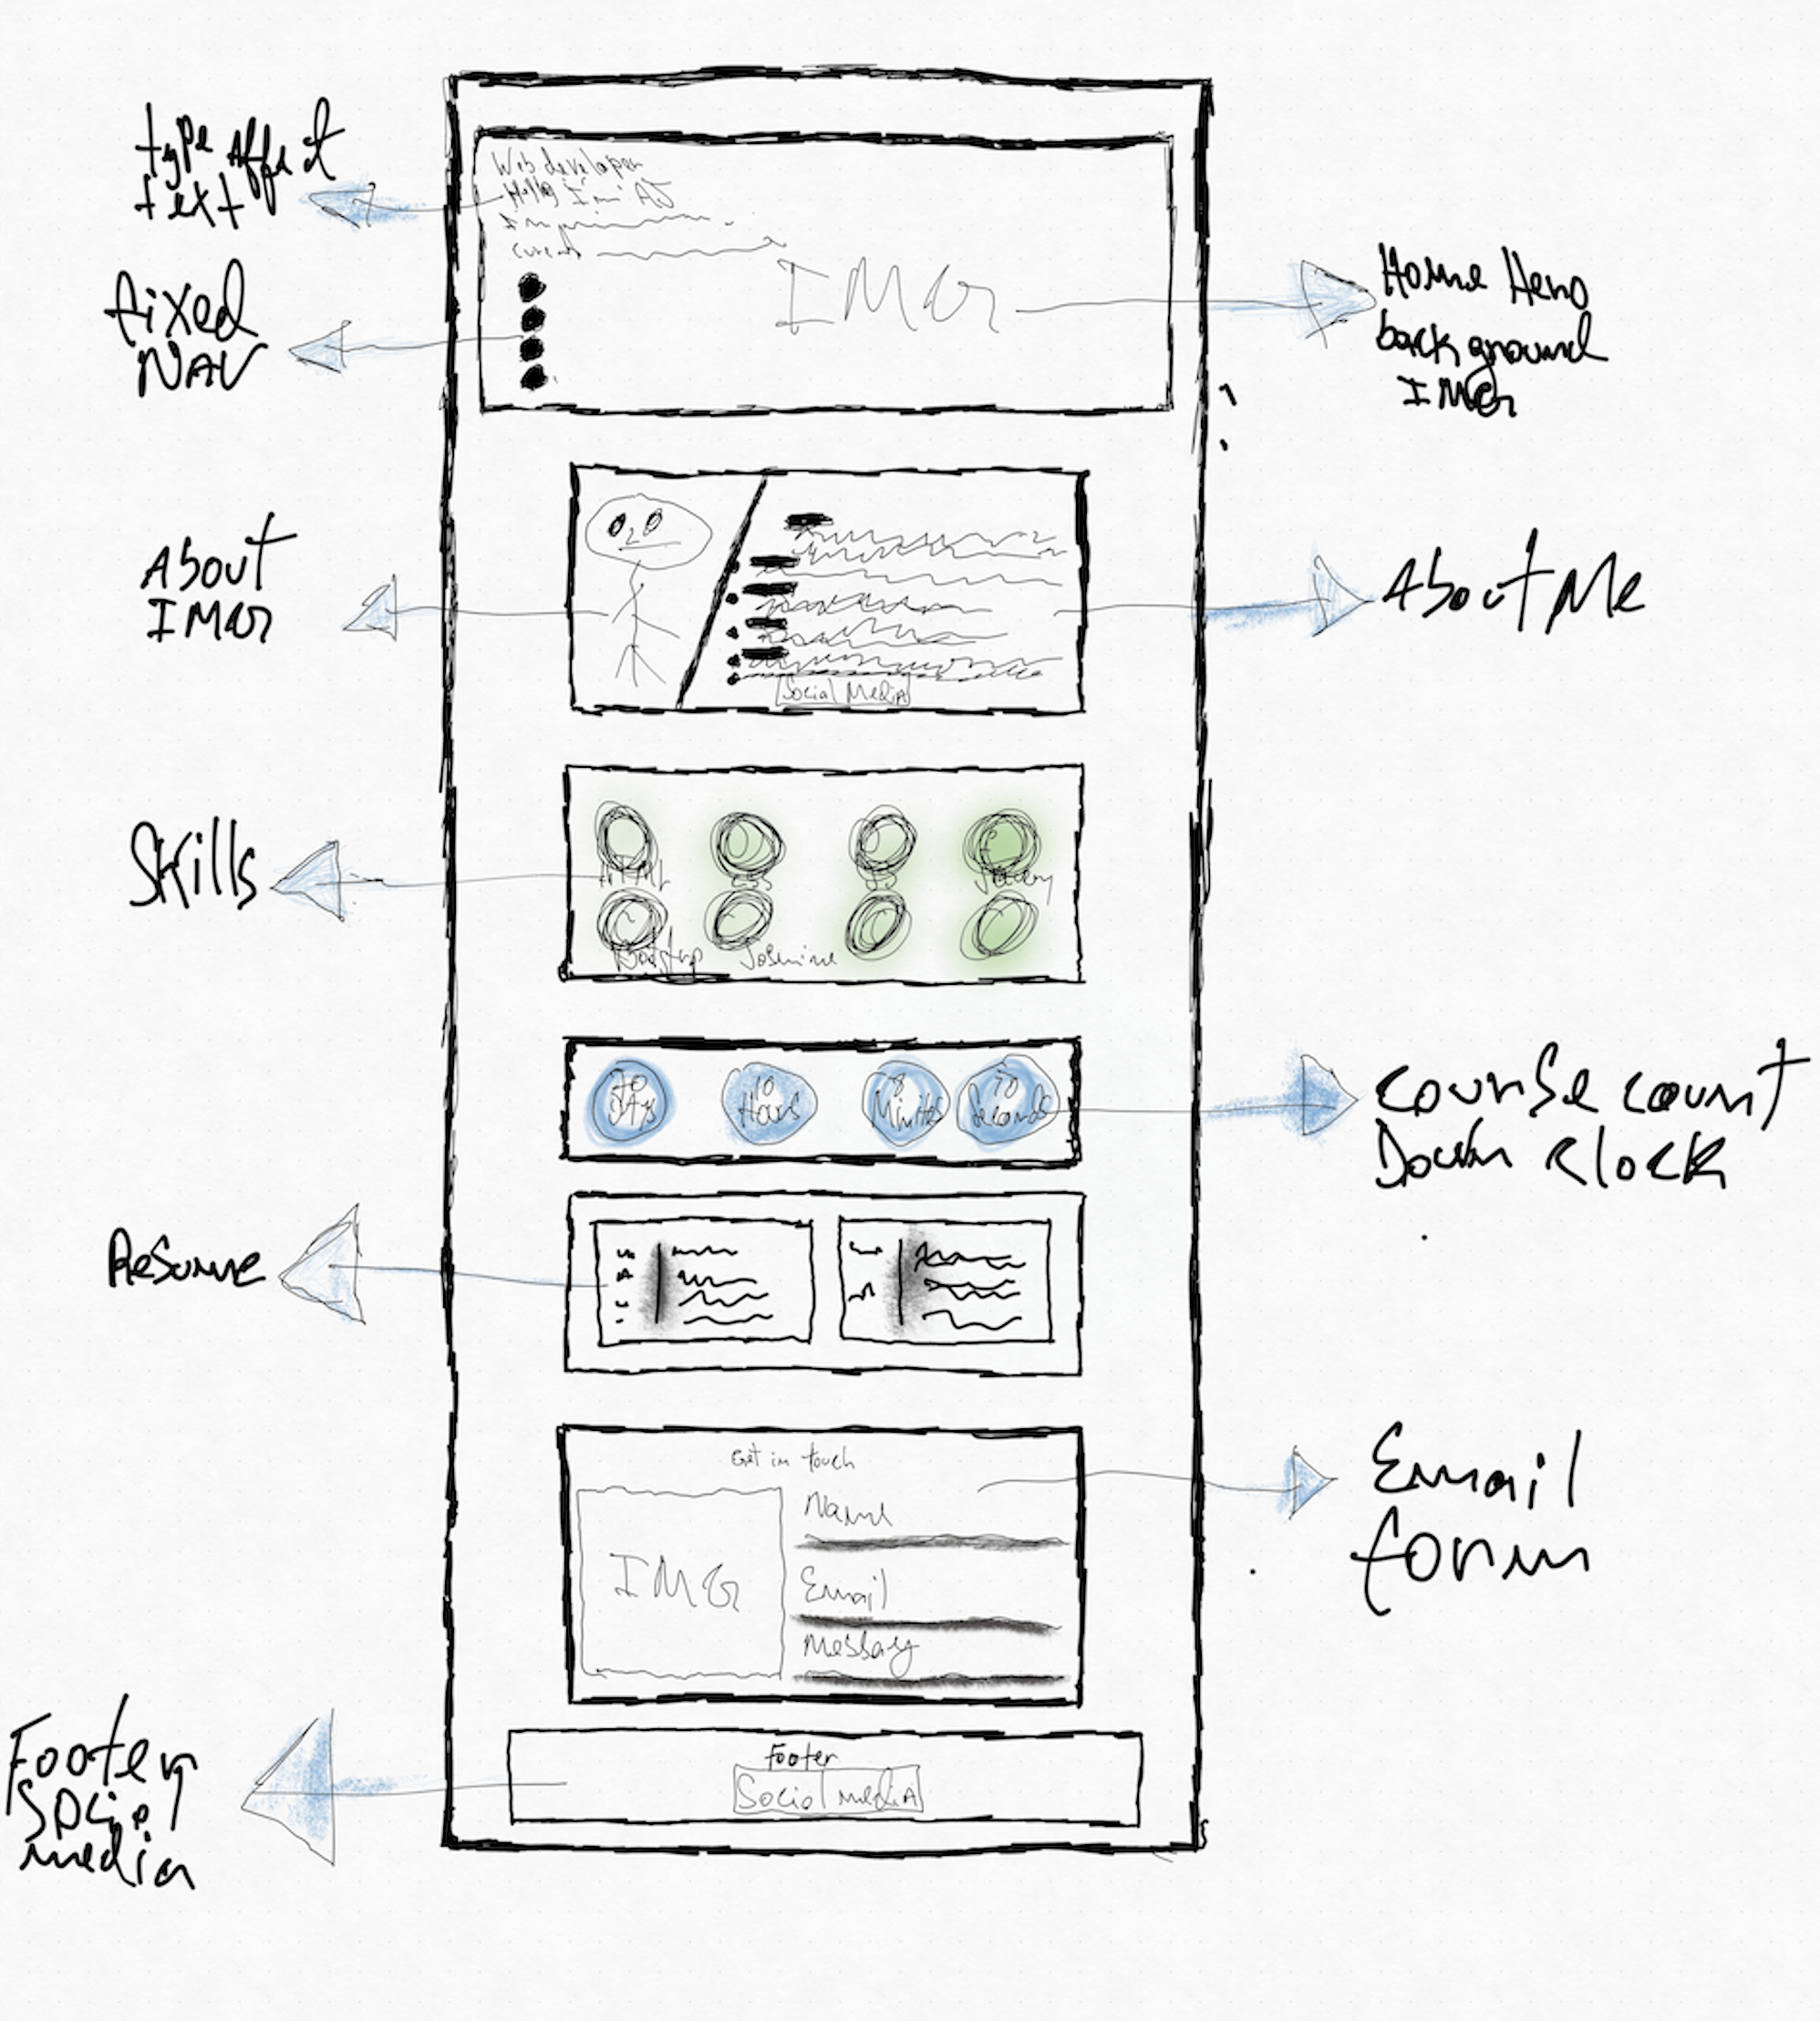 type Affect
text
Web developer
Hello I'm AJ
fixed
NAV
IMG
Home Hero
background
IMG
About
IMG
Social Media
About Me
Skills
HTML
Bootstrap
70
Days
10
Hours
8
Minites
70
Seconds
course count
Down clock
Resume
Get in touch
IMG
Name
Email
Message
Email
form
Footer
Social
media
Footer
Social media